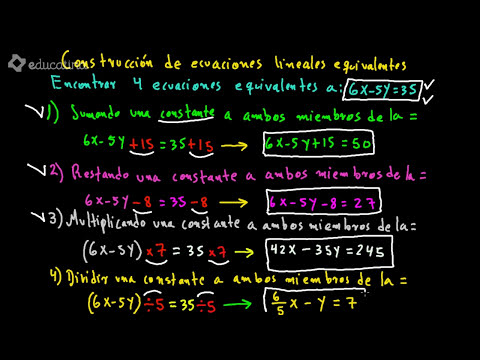 educatina
Construcción de ecuaciones lineales equivalentes
Encontrar 4 ecuaciones equivalentes a: 6x-5y=35
1) Sumando una constante a ambos miembros de la =
6x-5y+15 = 35+15 → 6x-5y+15 = 50
2) Restando una constante a ambos miembros de la =
6x-5y-8 = 35-8 → 6x-5y-8 = 27
3) Multiplicando una constante a ambos miembros de la =
(6x-5y)x7 = 35x7 → 42x - 35y = 245
4) Dividir una constante a ambos miembros de la =
(6x-5y)÷5 = 35÷5 → 6/5 x - y = 7